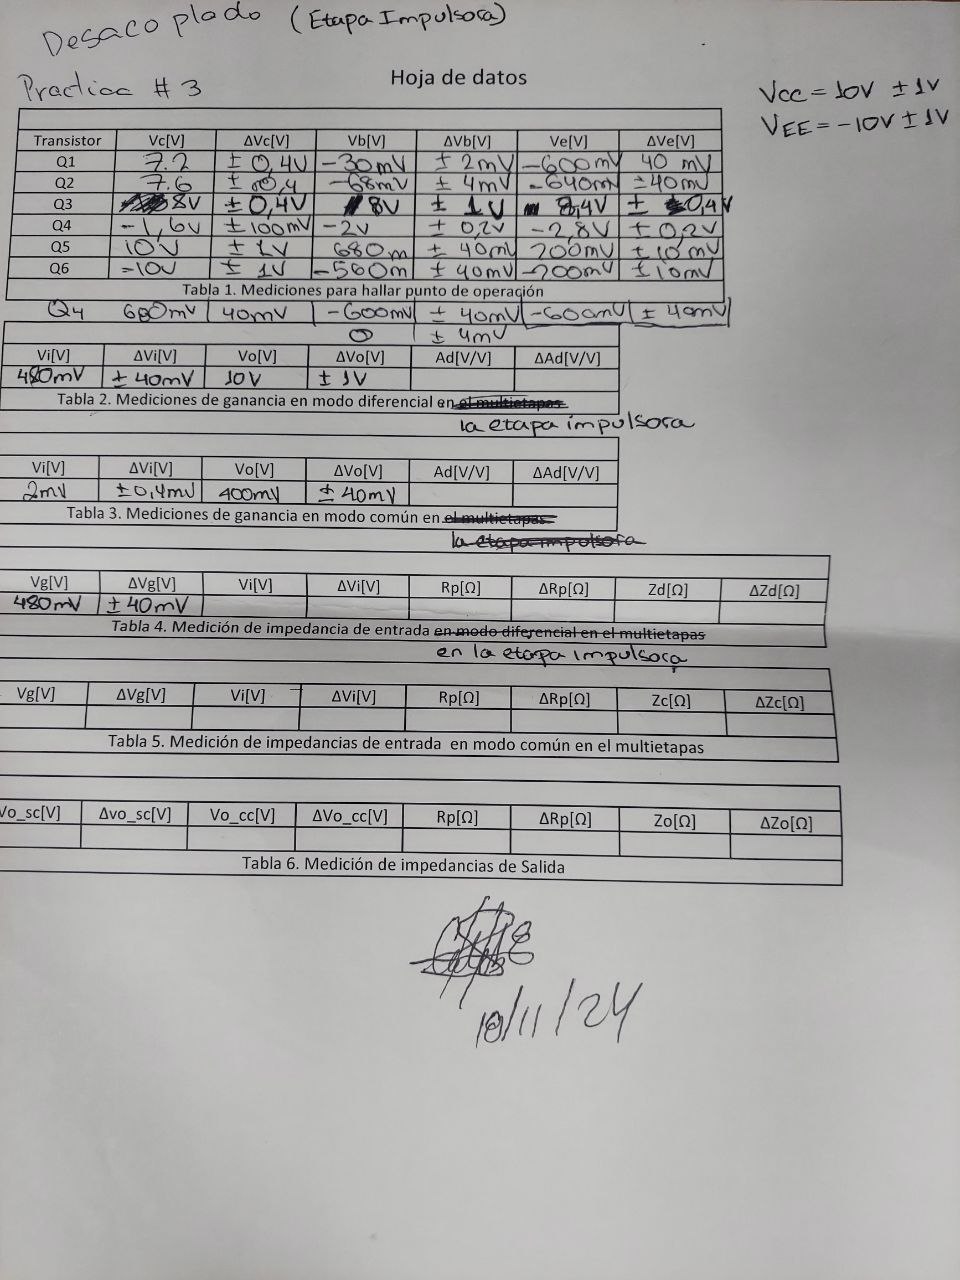 Desacoplado (Etapa Impulsora)
Practica # 3
Hoja de datos
Vcc = 10V ± 1V
VEE = -10V ± 1V
Transistor Vc[V] ΔVc[V] Vb[V] ΔVb[V] Ve[V] ΔVe[V]
Q1 7.2 ± 0,4V -30mV ± 2mV -600mV 40 mV
Q2 7.6 ± 0,4 -68mV ± 4mV -640mV ±40mV
Q3 8V ± 0,4V 8V ± 1V 8,4V ± 0,4V
Q4 -1,6V ±100mV -2V ± 0,2V -2,8V ± 0,2V
Q5 10V ± 1V 680m ± 40mV 700mV ± 10mV
Q6 -10V ± 1V -560m ± 40mV -700mV ± 10mV
Tabla 1. Mediciones para hallar punto de operación
Q4 680mV 40mV -600mV ± 40mV -600mV ± 40mV
0 ± 4mV
Vi[V] ΔVi[V] Vo[V] ΔVo[V] Ad[V/V] ΔAd[V/V]
480mV ± 40mV 10V ± 1V
Tabla 2. Mediciones de ganancia en modo diferencial en el multietapas
la etapa impulsora
Vi[V] ΔVi[V] Vo[V] ΔVo[V] Ad[V/V] ΔAd[V/V]
2mV ±0,4mV 400mV ± 40mV
Tabla 3. Mediciones de ganancia en modo común en el multietapas
la etapa impulsora
Vg[V] ΔVg[V] Vi[V] ΔVi[V] Rp[Ω] ΔRp[Ω] Zd[Ω] ΔZd[Ω]
480mV ± 40mV
Tabla 4. Medición de impedancia de entrada en modo diferencial en el multietapas
en la etapa impulsora
Vg[V] ΔVg[V] Vi[V] ΔVi[V] Rp[Ω] ΔRp[Ω] Zc[Ω] ΔZc[Ω]
Tabla 5. Medición de impedancias de entrada en modo común en el multietapas
Vo_sc[V] Δvo_sc[V] Vo_cc[V] ΔVo_cc[V] Rp[Ω] ΔRp[Ω] Zo[Ω] ΔZo[Ω]
Tabla 6. Medición de impedancias de Salida
18/11/24